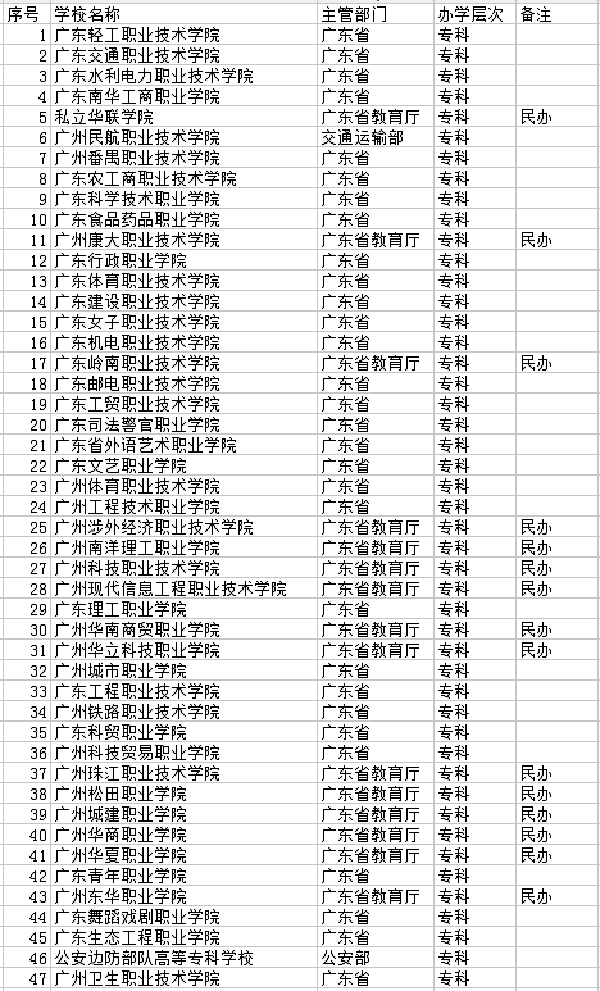 序号 学校名称 主管部门 办学层次 备注
1 广东轻工职业技术学院 广东省 专科
2 广东交通职业技术学院 广东省 专科
3 广东水利电力职业技术学院 广东省 专科
4 广东南华工商职业学院 广东省 专科
5 私立华联学院 广东省教育厅 专科 民办
6 广州民航职业技术学院 交通运输部 专科
7 广州番禺职业技术学院 广东省 专科
8 广东农工商职业技术学院 广东省 专科
9 广东科学技术职业学院 广东省 专科
10 广东食品药品职业学院 广东省 专科
11 广州康大职业技术学院 广东省教育厅 专科 民办
12 广东行政职业学院 广东省 专科
13 广东体育职业技术学院 广东省 专科
14 广东建设职业技术学院 广东省 专科
15 广东女子职业技术学院 广东省 专科
16 广东机电职业技术学院 广东省 专科
17 广东岭南职业技术学院 广东省教育厅 专科 民办
18 广东邮电职业技术学院 广东省 专科
19 广东工贸职业技术学院 广东省 专科
20 广东司法警官职业学院 广东省 专科
21 广东省外语艺术职业学院 广东省 专科
22 广东文艺职业学院 广东省 专科
23 广州体育职业技术学院 广东省 专科
24 广州工程技术职业学院 广东省 专科
25 广州涉外经济职业技术学院 广东省教育厅 专科 民办
26 广州南洋理工职业学院 广东省教育厅 专科 民办
27 广州科技职业技术学院 广东省教育厅 专科 民办
28 广州现代信息工程职业技术学院 广东省教育厅 专科 民办
29 广东理工职业学院 广东省 专科
30 广州华南商贸职业学院 广东省教育厅 专科 民办
31 广州华立科技职业学院 广东省教育厅 专科 民办
32 广州城市职业学院 广东省 专科
33 广东工程职业技术学院 广东省 专科
34 广州铁路职业技术学院 广东省 专科
35 广东科贸职业学院 广东省 专科
36 广州科技贸易职业学院 广东省 专科
37 广州珠江职业技术学院 广东省教育厅 专科 民办
38 广州松田职业学院 广东省教育厅 专科 民办
39 广州城建职业学院 广东省教育厅 专科 民办
40 广州华商职业学院 广东省教育厅 专科 民办
41 广州华夏职业学院 广东省教育厅 专科 民办
42 广东青年职业学院 广东省 专科
43 广州东华职业学院 广东省教育厅 专科 民办
44 广东舞蹈戏剧职业学院 广东省 专科
45 广东生态工程职业学院 广东省 专科
46 公安边防部队高等专科学校 公安部 专科
47 广州卫生职业技术学院 广东省 专科